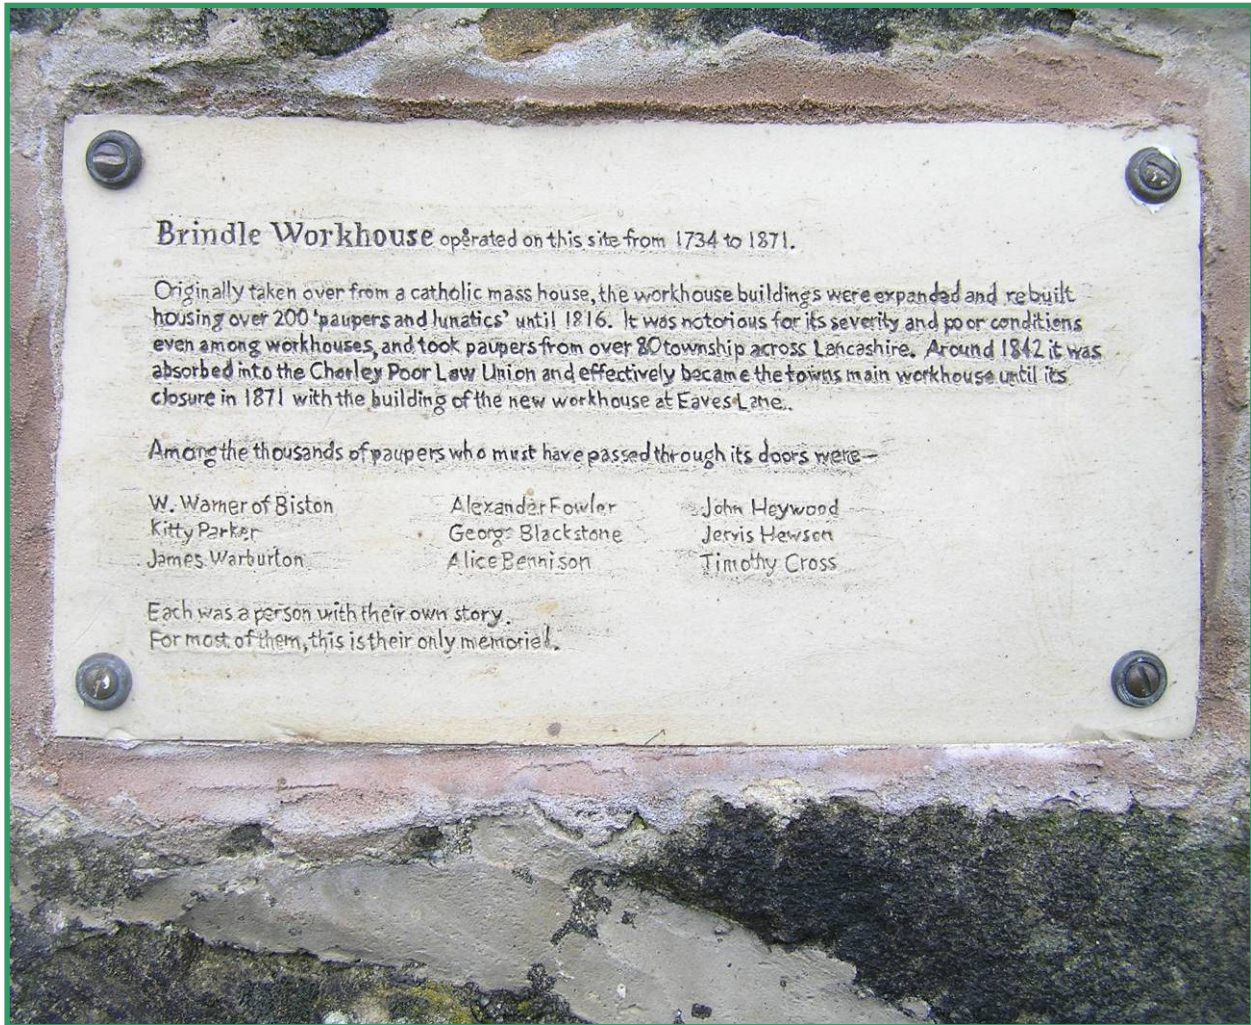 Brindle Workhouse operated on this site from 1734 to 1871.
Originally taken over from a catholic mass house, the workhouse buildings were expanded and rebuilt
housing over 200 'paupers and lunatics' until 1816. It was notorious for its severity and poor conditions
even among workhouses, and took paupers from over 80 township across Lancashire. Around 1842 it was
absorbed into the Chorley Poor Law Union and effectively became the towns main workhouse until its
closure in 1871 with the building of the new workhouse at Eaves Lane.
Among the thousands of paupers who must have passed through its doors were-
W. Warner of Biston Alexander Fowler John Heywood
Kitty Parker George Blackstone Jervis Hewson
James Warburton Alice Bennison Timothy Cross
Each was a person with their own story.
For most of them, this is their only memorial.